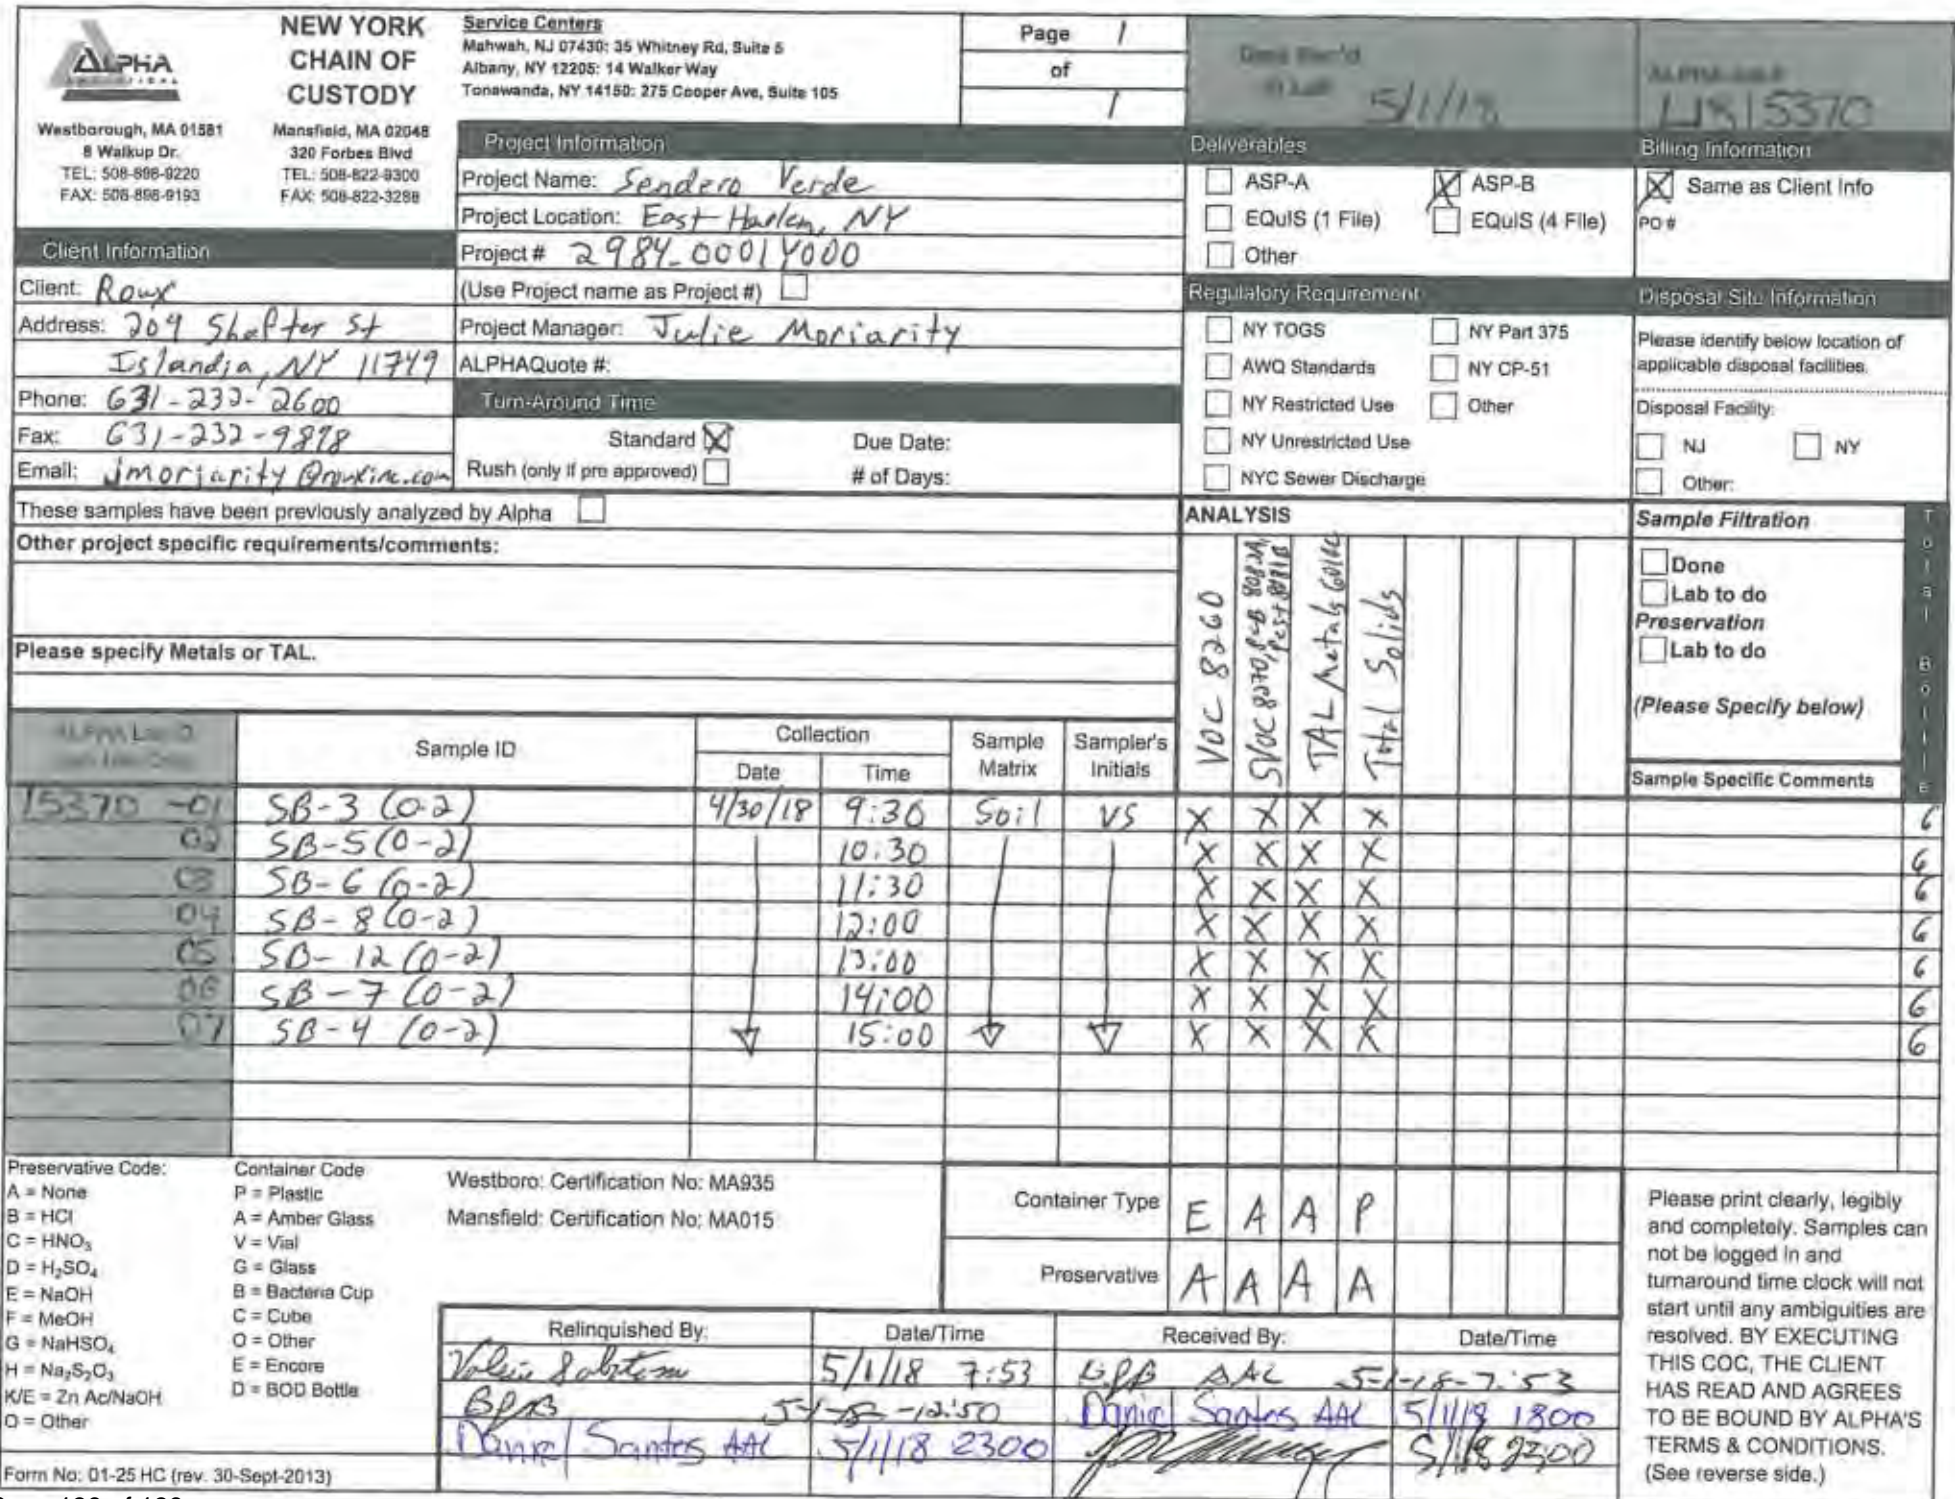 ALPHA
ANALYTICAL
Westborough, MA 01581
8 Walkup Dr.
TEL: 508-898-9220
FAX: 508-898-9193
NEW YORK
CHAIN OF
CUSTODY
Mansfield, MA 02048
320 Forbes Blvd
TEL: 508-822-9300
FAX: 508-822-3288
Service Centers
Mahwah, NJ 07430: 35 Whitney Rd, Suite 5
Albany, NY 12205: 14 Walker Way
Tonawanda, NY 14150: 275 Cooper Ave, Suite 105
Page 1
of
1
Date Rec'd
in Lab 5/1/18
ALPHA Job #
L1815370
Client Information
Client: Roux
Address: 209 Shafter St
Islandia, NY 11749
Phone: 631-232-2600
Fax: 631-232-9898
Email: jmoriarity@rouxinc.com
Project Information
Project Name: Sendero Verde
Project Location: East Harlem, NY
Project # 2984.0001Y000
(Use Project name as Project #)
Project Manager: Julie Moriarity
ALPHAQuote #:
Turn-Around Time
Standard X Due Date:
Rush (only if pre approved) # of Days:
Deliverables
ASP-A X ASP-B
EQuIS (1 File) EQuIS (4 File)
Other
Billing Information
X Same as Client Info
PO #
Regulatory Requirement
NY TOGS NY Part 375
AWQ Standards NY CP-51
NY Restricted Use Other
NY Unrestricted Use
NYC Sewer Discharge
Disposal Site Information
Please identify below location of
applicable disposal facilities.
Disposal Facility:
NJ NY
Other:
These samples have been previously analyzed by Alpha
Other project specific requirements/comments:
Please specify Metals or TAL.
ANALYSIS
VOC 8260
SVOC 8270, PCB 8082A,
Pest 8081B
TAL Metals 6010C
Total Solids
Sample Filtration
Done
Lab to do
Preservation
Lab to do
(Please Specify below)
Total Bottle
ALPHA Lab ID
(Lab Use Only)
Sample ID
Collection
Date Time
Sample
Matrix
Sampler's
Initials
Sample Specific Comments
15370 -01 SB-3 (0-2) 4/30/18 9:30 Soil VS X X X X 6
02 SB-5 (0-2) 10:30 X X X X 6
03 SB-6 (0-2) 11:30 X X X X 6
04 SB-8 (0-2) 12:00 X X X X 6
05 SB-12 (0-2) 13:00 X X X X 6
06 SB-7 (0-2) 14:00 X X X X 6
07 SB-4 (0-2) 15:00 X X X X 6
Preservative Code:
A = None
B = HCl
C = HNO3
D = H2SO4
E = NaOH
F = MeOH
G = NaHSO4
H = Na2S2O3
K/E = Zn Ac/NaOH
O = Other
Container Code
P = Plastic
A = Amber Glass
V = Vial
G = Glass
B = Bacteria Cup
C = Cube
O = Other
E = Encore
D = BOD Bottle
Westboro: Certification No: MA935
Mansfield: Certification No: MA015
Container Type E A A P
Preservative A A A A
Relinquished By: Date/Time Received By: Date/Time
5/1/18 7:53 AAL 5-1-18-7:53
-12:50 Daniel Santos AAL 5/1/18 1800
Daniel Santos AAL 5/1/18 2300 5/1/18 2300
Please print clearly, legibly
and completely. Samples can
not be logged in and
turnaround time clock will not
start until any ambiguities are
resolved. BY EXECUTING
THIS COC, THE CLIENT
HAS READ AND AGREES
TO BE BOUND BY ALPHA'S
TERMS & CONDITIONS.
(See reverse side.)
Form No: 01-25 HC (rev. 30-Sept-2013)